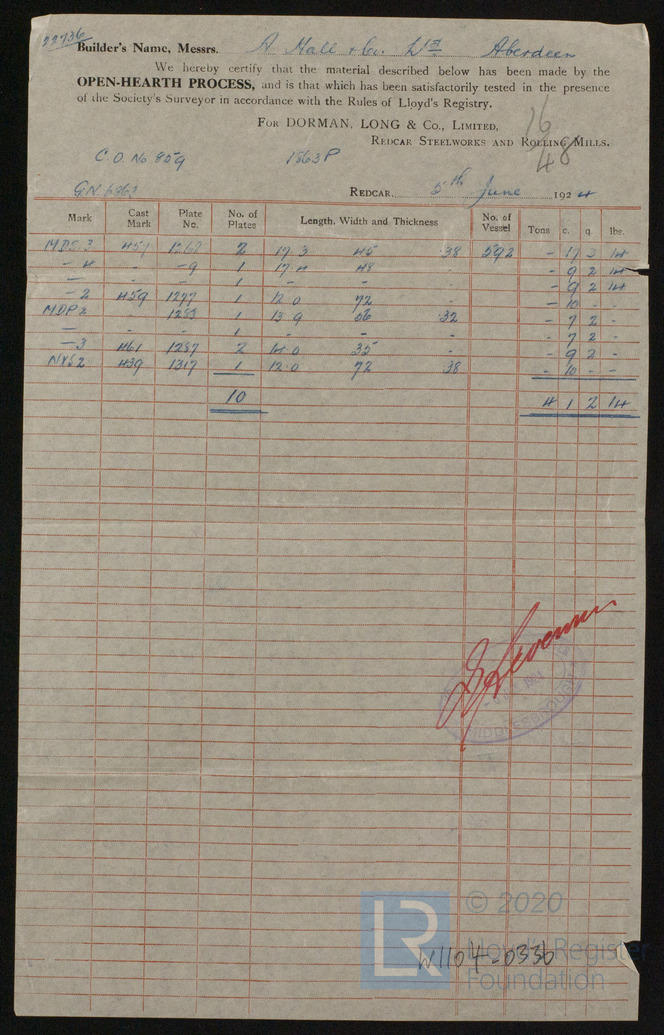 22736
Builder's Name, Messrs. A Hall & Co. Ltd Aberdeen
We hereby certify that the material described below has been made by the
OPEN-HEARTH PROCESS, and is that which has been satisfactorily tested in the presence
of the Society's Surveyor in accordance with the Rules of Lloyd's Registry.
FOR DORMAN, LONG & Co., LIMITED,
REDCAR STEELWORKS AND ROLLING MILLS.
16
48
C.O. No 859 1563P
REDCAR. 5th June 1924
Mark Cast Mark Plate No. No. of Plates Length, Width and Thickness No. of Vessel Tons c. q. lbs.
3 2 17 3 45 .38 592 - 17 3 14
- 4 - -9 1 48 - 9 2 14
- - - 1 - - - 9 2 14
- 2 459 1277 1 12 0 72 - - 10 - -
MDP 2 1283 1 13 9 56 .32 - 7 2 -
- - - 1 - - - - 7 2 -
- 3 461 1287 2 14 0 35 - - 9 2 -
2 439 1317 1 12 0 72 .38 - 10 - -
10 4 1 2 14
MIDDLESBROUGH
LR
© 2020
Lloyd's Register
Foundation
W1104-0336